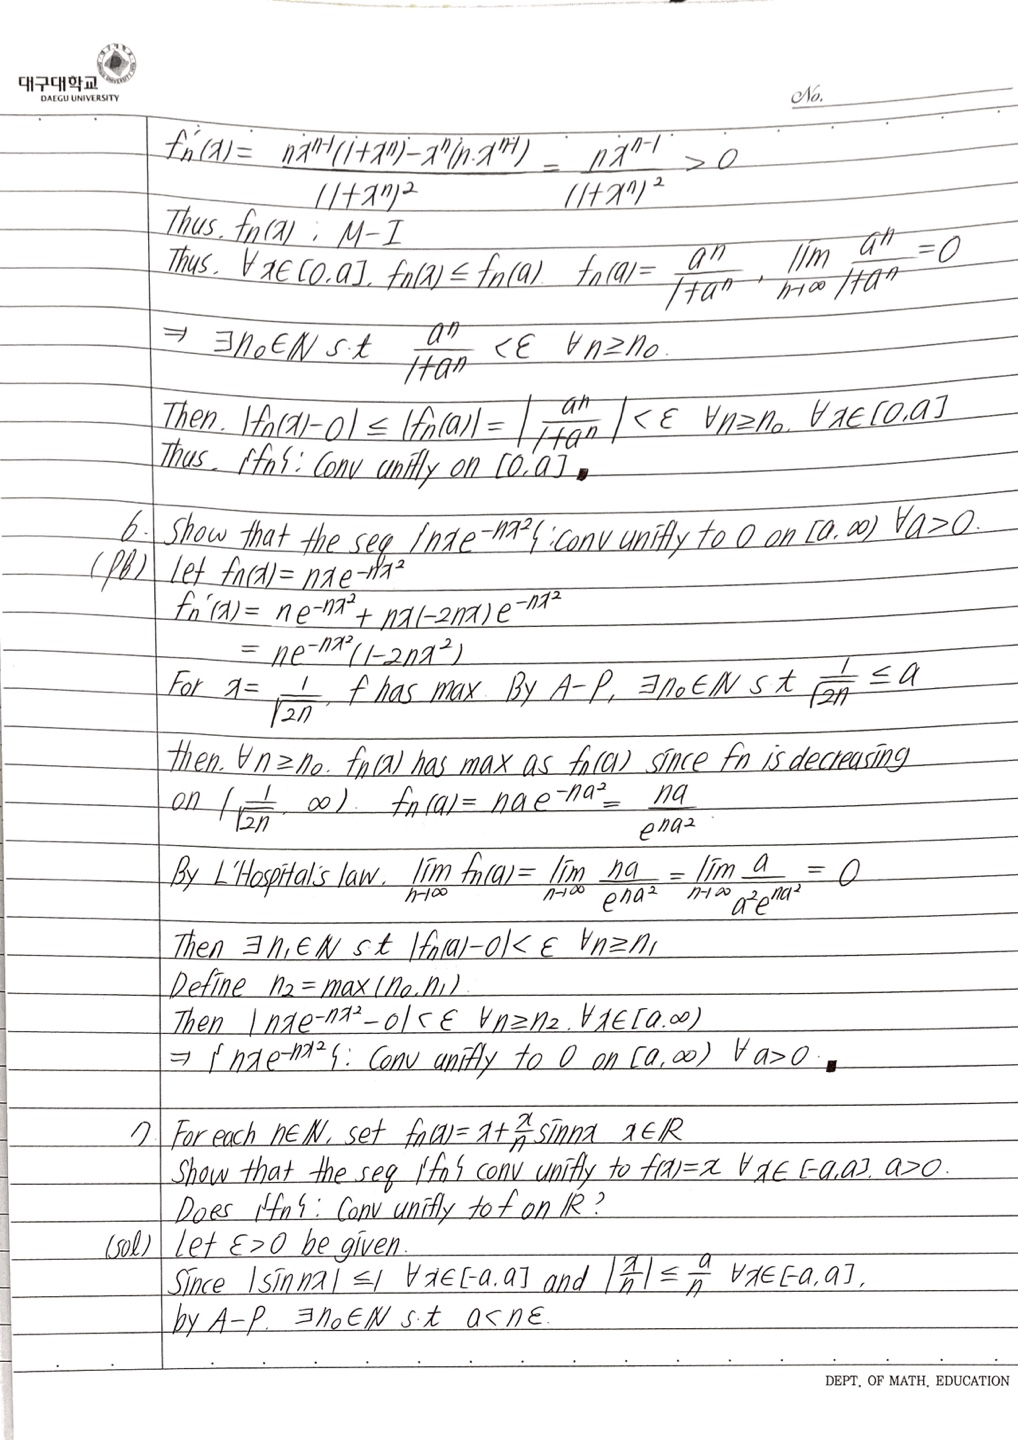 대구대학교
DAEGU UNIVERSITY
No.
fn'(x) = (nxⁿ⁻¹(1+xⁿ)-xⁿ(n·xⁿ⁻¹))/(1+xⁿ)² = nxⁿ⁻¹/(1+xⁿ)² > 0
Thus. fn(x) : M-I
Thus. ∀x∈[0,a]. fn(x) ≤ fn(a) fn(a) = aⁿ/(1+aⁿ), lim n→∞ aⁿ/(1+aⁿ) = 0
⇒ ∃n₀∈ℕ s.t aⁿ/(1+aⁿ) < ε ∀n≥n₀.
Then. |fn(x)-0| ≤ |fn(a)| = |aⁿ/(1+aⁿ)| < ε ∀n≥n₀. ∀x∈[0,a]
Thus. {fn}: Conv unifly on [0,a].
6. Show that the seq {nxe^(-nx²)}: conv unifly to 0 on [a,∞) ∀a>0.
(pf) Let fn(x) = nxe^(-nx²)
fn'(x) = ne^(-nx²) + nx(-2nx)e^(-nx²)
= ne^(-nx²)(1-2nx²)
For x = 1/√2n, f has max. By A-P, ∃n₀∈ℕ s.t 1/√2n ≤ a
then. ∀n≥n₀. fn(x) has max as fn(a) since fn is decreasing
on (1/√2n, ∞). fn(a) = nae^(-na²) = na/e^(na²)
By L'Hospital's law. lim n→∞ fn(a) = lim n→∞ na/e^(na²) = lim n→∞ a/(a²e^(na²)) = 0
Then ∃n₁∈ℕ s.t |fn(a)-0| < ε ∀n≥n₁
Define n₂ = max(n₀,n₁)
Then |nxe^(-nx²)-0| < ε ∀n≥n₂. ∀x∈[a.∞)
⇒ {nxe^(-nx²)}: Conv unifly to 0 on [a,∞) ∀a>0.
7. For each n∈ℕ, set fn(x) = x + x/n sinnx x∈ℝ
Show that the seq {fn} conv unifly to f(x) = x ∀x∈[-a,a]. a>0.
Does {fn}: Conv unifly to f on ℝ?
(sol) Let ε>0 be given.
Since |sinnx| ≤ 1 ∀x∈[-a.a] and |x/n| ≤ a/n ∀x∈[-a,a],
by A-P. ∃n₀∈ℕ s.t a<nε.
DEPT. OF MATH. EDUCATION